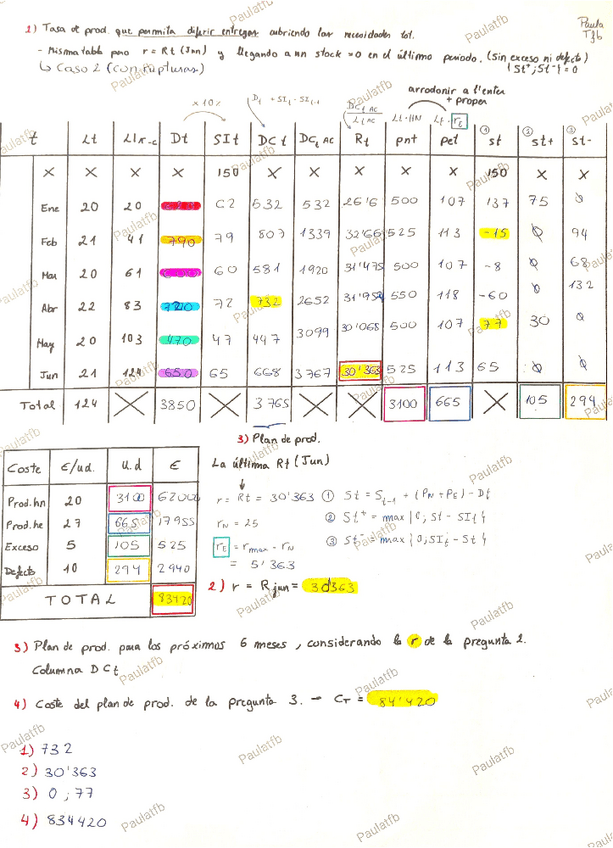 Paula
Tfb
2) Tasa de prod. que permita diferir entregas cubriendo las necesidades tot.
- Misma tabla pero r = Rt (Jun) y llegando a un stock = 0 en el último periodo. (Sin exceso ni defecto)
↳ Caso 2 (con rupturas) {St+; St-} = 0
arrodonir a l'enter + proper
x 10% Dt + SIt - SIt-1 DCt AC / Lt AC Lt · HN Lt · rE
t Lt LIK-C Dt SIt DCt DCt AC Rt pnt pet ① st ② st+ ③ st-
X X X X 150 X X X X X 150 X X
Ene 20 20 62 532 532 26'6 500 107 137 75 0
Feb 21 41 790 79 807 1339 32'66 525 113 -15 0 94
Mar 20 61 60 581 1920 31'475 500 107 -8 0 68
Abr 22 83 720 72 732 2652 550 118 -60 0 132
May 20 103 470 47 447 3099 30'068 500 107 77 30 0
Jun 21 124 650 65 668 3767 30'363 525 113 65 0 0
Total 124 X 3850 X 3765 X X 3100 665 X 105 294
3) Plan de prod.
Coste €/ud. u.d €
Prod.hn 20 3100 62000
Prod.he 27 665 17955
Exceso 5 105 525
Defecto 10 294 2940
TOTAL 83420
La última Rt (Jun)
↓
r = Rt = 30'363
rN = 25
rE = rmax - rN
= 5'363
① St = St-1 + (PN + PE) - Dt
② St+ = max {0; St - SIt}
③ St- = max {0; SIt - St}
2) r = RJun = 30'363
3) Plan de prod. para los próximos 6 meses, considerando la r de la pregunta 2.
Columna DCt
4) Coste del plan de prod. de la pregunta 3. → CT = 84'420
1) 732
2) 30'363
3) 0 ; 77
4) 834420
Paulatfb